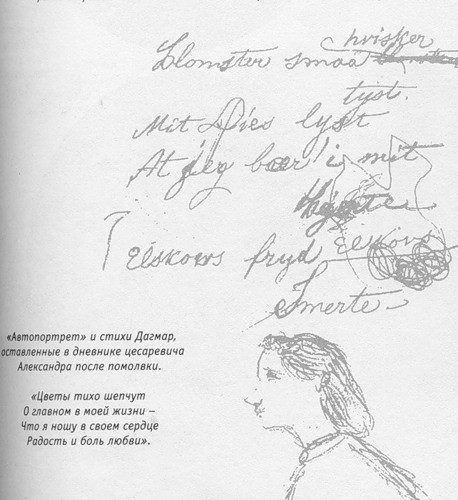 hvisker
Blomster smaa
tyst.
Mit Øies lyst
At jeg bær i mit
Hjerte
Elskovs fryd Elskovs
Smerte
«Автопортрет» и стихи Дагмар,
оставленные в дневнике цесаревича
Александра после помолвки.
«Цветы тихо шепчут
О главном в моей жизни –
Что я ношу в своем сердце
Радость и боль любви».